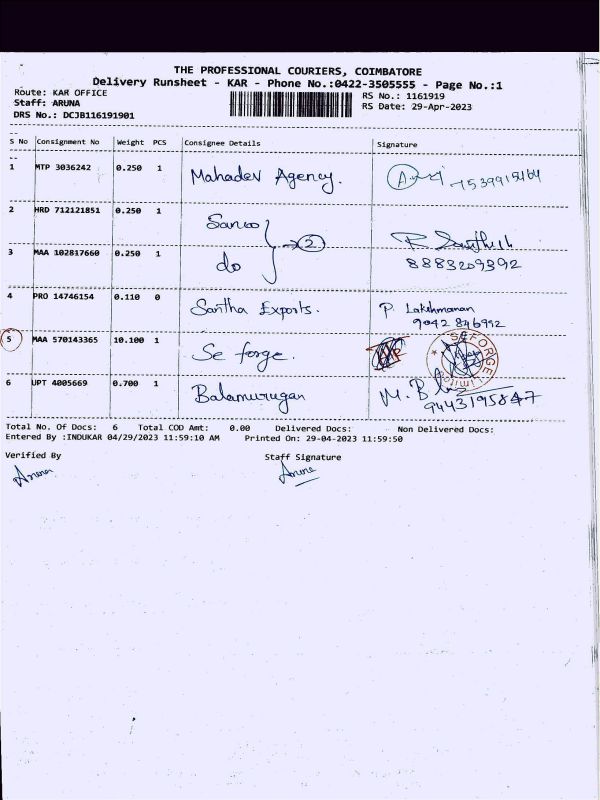 THE PROFESSIONAL COURIERS, COIMBATORE
Delivery Runsheet - KAR - Phone No.:0422-3505555 - Page No.:1
Route: KAR OFFICE
Staff: ARUNA
DRS No.: DCJB116191901
RS No.: 1161919
RS Date: 29-Apr-2023
S No Consignment No Weight PCS Consignee Details Signature
1 MTP 3036242 0.250 1 Mahadev Agency.
2 HRD 712121851 0.250 1
2
3 MAA 102817660 0.250 1 do 8883209392
4 PRO 14746154 0.110 0 Santha Exports. P. Lakshmanan
9042846992
5 MAA 570143365 10.100 1 Se forge. SEFORGE Limited
6 UPT 4005669 0.700 1 Balamurugan M. B
9443195847
Total No. Of Docs: 6 Total COD Amt: 0.00 Delivered Docs: Non Delivered Docs:
Entered By :INDUKAR 04/29/2023 11:59:10 AM Printed On: 29-04-2023 11:59:50
Verified By Staff Signature
Aruna Aruna